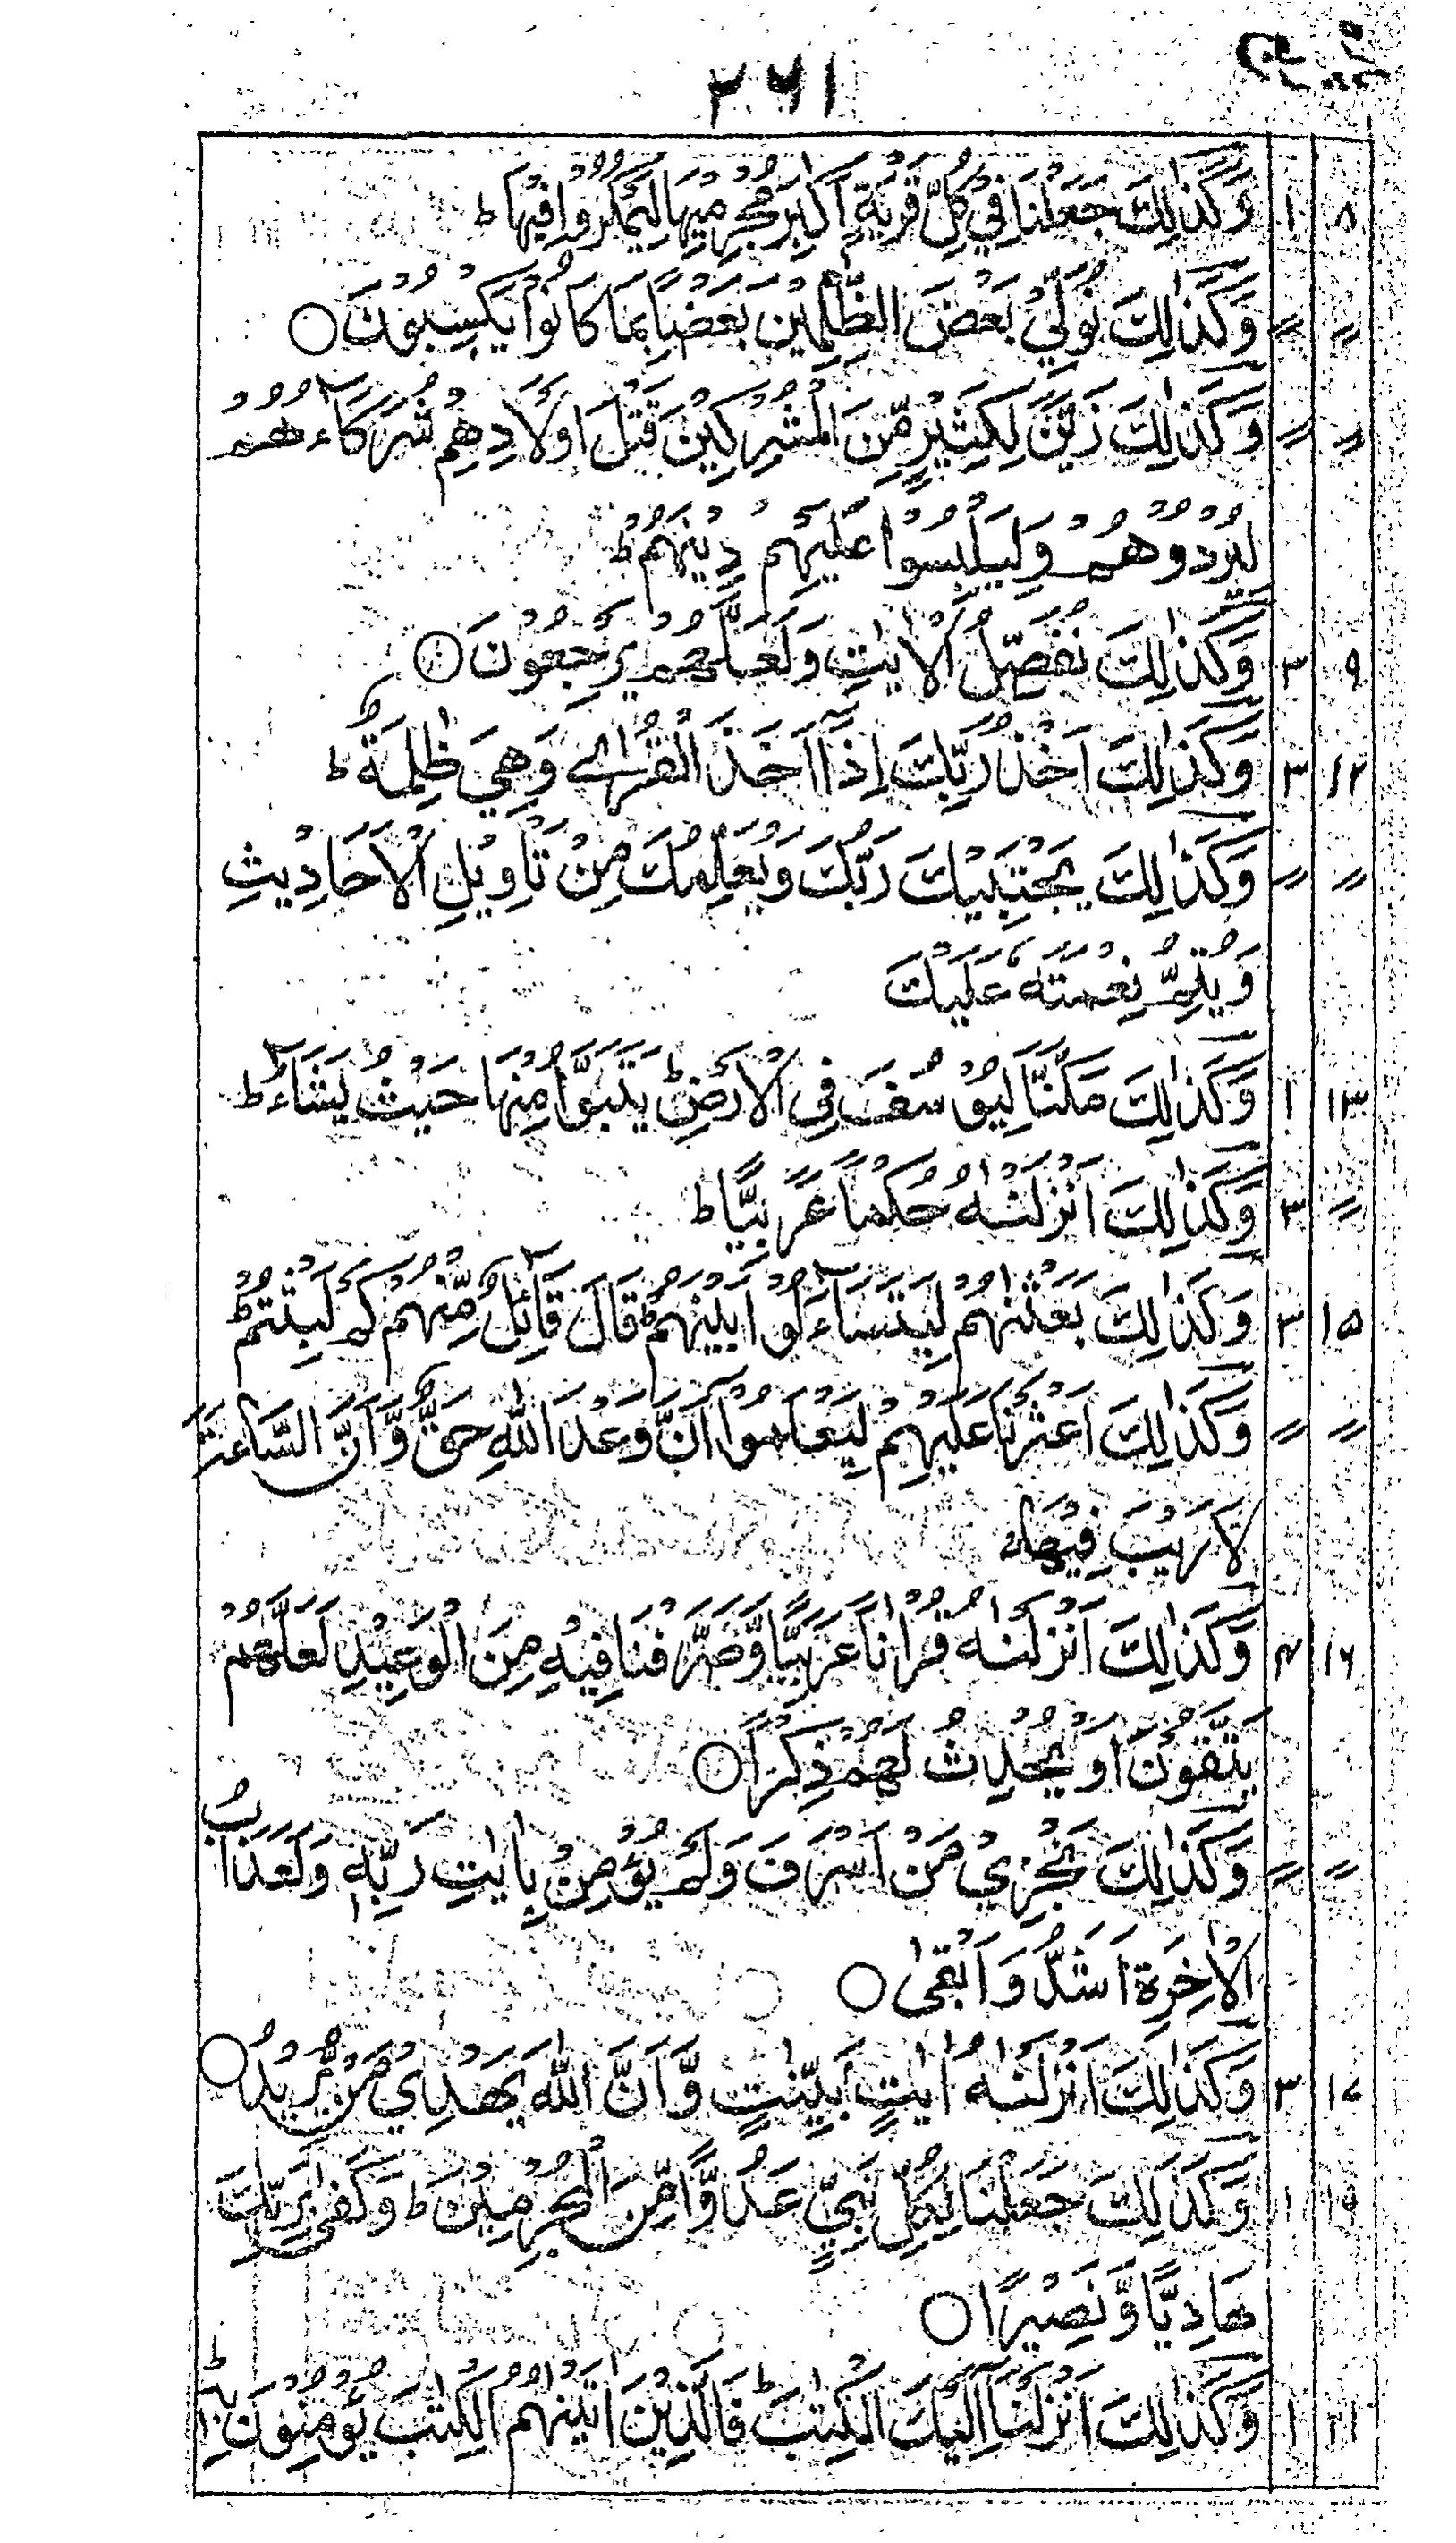 ۳۶۱
۸ ۱ وَكَذٰلِكَ جَعَلْنَا فِيْ كُلِّ قَرْيَةٍ اَكٰبِرَ مُجْرِمِيْهَا لِيَمْكُرُوْا فِيْهَا ؕ
〃 〃 وَكَذٰلِكَ نُوَلِّيْ بَعْضَ الظّٰلِمِيْنَ بَعْضًا بِمَا كَانُوْا يَكْسِبُوْنَ ○
〃 〃 وَكَذٰلِكَ زَيَّنَ لِكَثِيْرٍ مِّنَ الْمُشْرِكِيْنَ قَتْلَ اَوْلَادِهِمْ شُرَكَآءُ هُمْ
لِيُرْدُوْهُمْ وَلِيَلْبِسُوْا عَلَيْهِمْ دِيْنَهُمْ ؕ
۹ ۳ وَكَذٰلِكَ نُفَصِّلُ الْاٰيٰتِ وَلَعَلَّهُمْ يَرْجِعُوْنَ ○
۱۲ ۳ وَكَذٰلِكَ اَخْذُ رَبِّكَ اِذَآ اَخَذَ الْقُرٰى وَهِيَ ظٰلِمَةٌ ؕ
〃 〃 وَكَذٰلِكَ يَجْتَبِيْكَ رَبُّكَ وَيُعَلِّمُكَ مِنْ تَاْوِيْلِ الْاَحَادِيْثِ
وَيُتِمُّ نِعْمَتَهٗ عَلَيْكَ
۱۳ ۱ وَكَذٰلِكَ مَكَّنَّا لِيُوْسُفَ فِى الْاَرْضِ ۚ يَتَبَوَّاُ مِنْهَا حَيْثُ يَشَآءُ ؕ
〃 ۳ وَكَذٰلِكَ اَنْزَلْنٰهُ حُكْمًا عَرَبِيًّا ؕ
۱۵ ۳ وَكَذٰلِكَ بَعَثْنٰهُمْ لِيَتَسَآءَلُوْا بَيْنَهُمْ ؕ قَالَ قَآئِلٌ مِّنْهُمْ كَمْ لَبِثْتُمْ ؕ
〃 〃 وَكَذٰلِكَ اَعْثَرْنَا عَلَيْهِمْ لِيَعْلَمُوْٓا اَنَّ وَعْدَ اللّٰهِ حَقٌّ وَّاَنَّ السَّاعَةَ
لَا رَيْبَ فِيْهَا
۱۶ ۴ وَكَذٰلِكَ اَنْزَلْنٰهُ قُرْاٰنًا عَرَبِيًّا وَّصَرَّفْنَا فِيْهِ مِنَ الْوَعِيْدِ لَعَلَّهُمْ
يَتَّقُوْنَ اَوْ يُحْدِثُ لَهُمْ ذِكْرًا ○
〃 〃 وَكَذٰلِكَ نَجْزِيْ مَنْ اَسْرَفَ وَلَمْ يُؤْمِنْ بِاٰيٰتِ رَبِّهٖ وَلَعَذَابُ
الْاٰخِرَةِ اَشَدُّ وَاَبْقٰى ○
۱۷ ۳ وَكَذٰلِكَ اَنْزَلْنٰهُ اٰيٰتٍ بَيِّنٰتٍ وَّاَنَّ اللّٰهَ يَهْدِيْ مَنْ يُّرِيْدُ ○
۱۹ ۱ وَكَذٰلِكَ جَعَلْنَا لِكُلِّ نَبِيٍّ عَدُوًّا مِّنَ الْمُجْرِمِيْنَ ؕ وَكَفٰى بِرَبِّكَ
هَادِيًا وَّنَصِيْرًا ○
وَكَذٰلِكَ اَنْزَلْنَآ اِلَيْكَ الْكِتٰبَ ؕ فَالَّذِيْنَ اٰتَيْنٰهُمُ الْكِتٰبَ يُؤْمِنُوْنَ بِهٖ ؕ